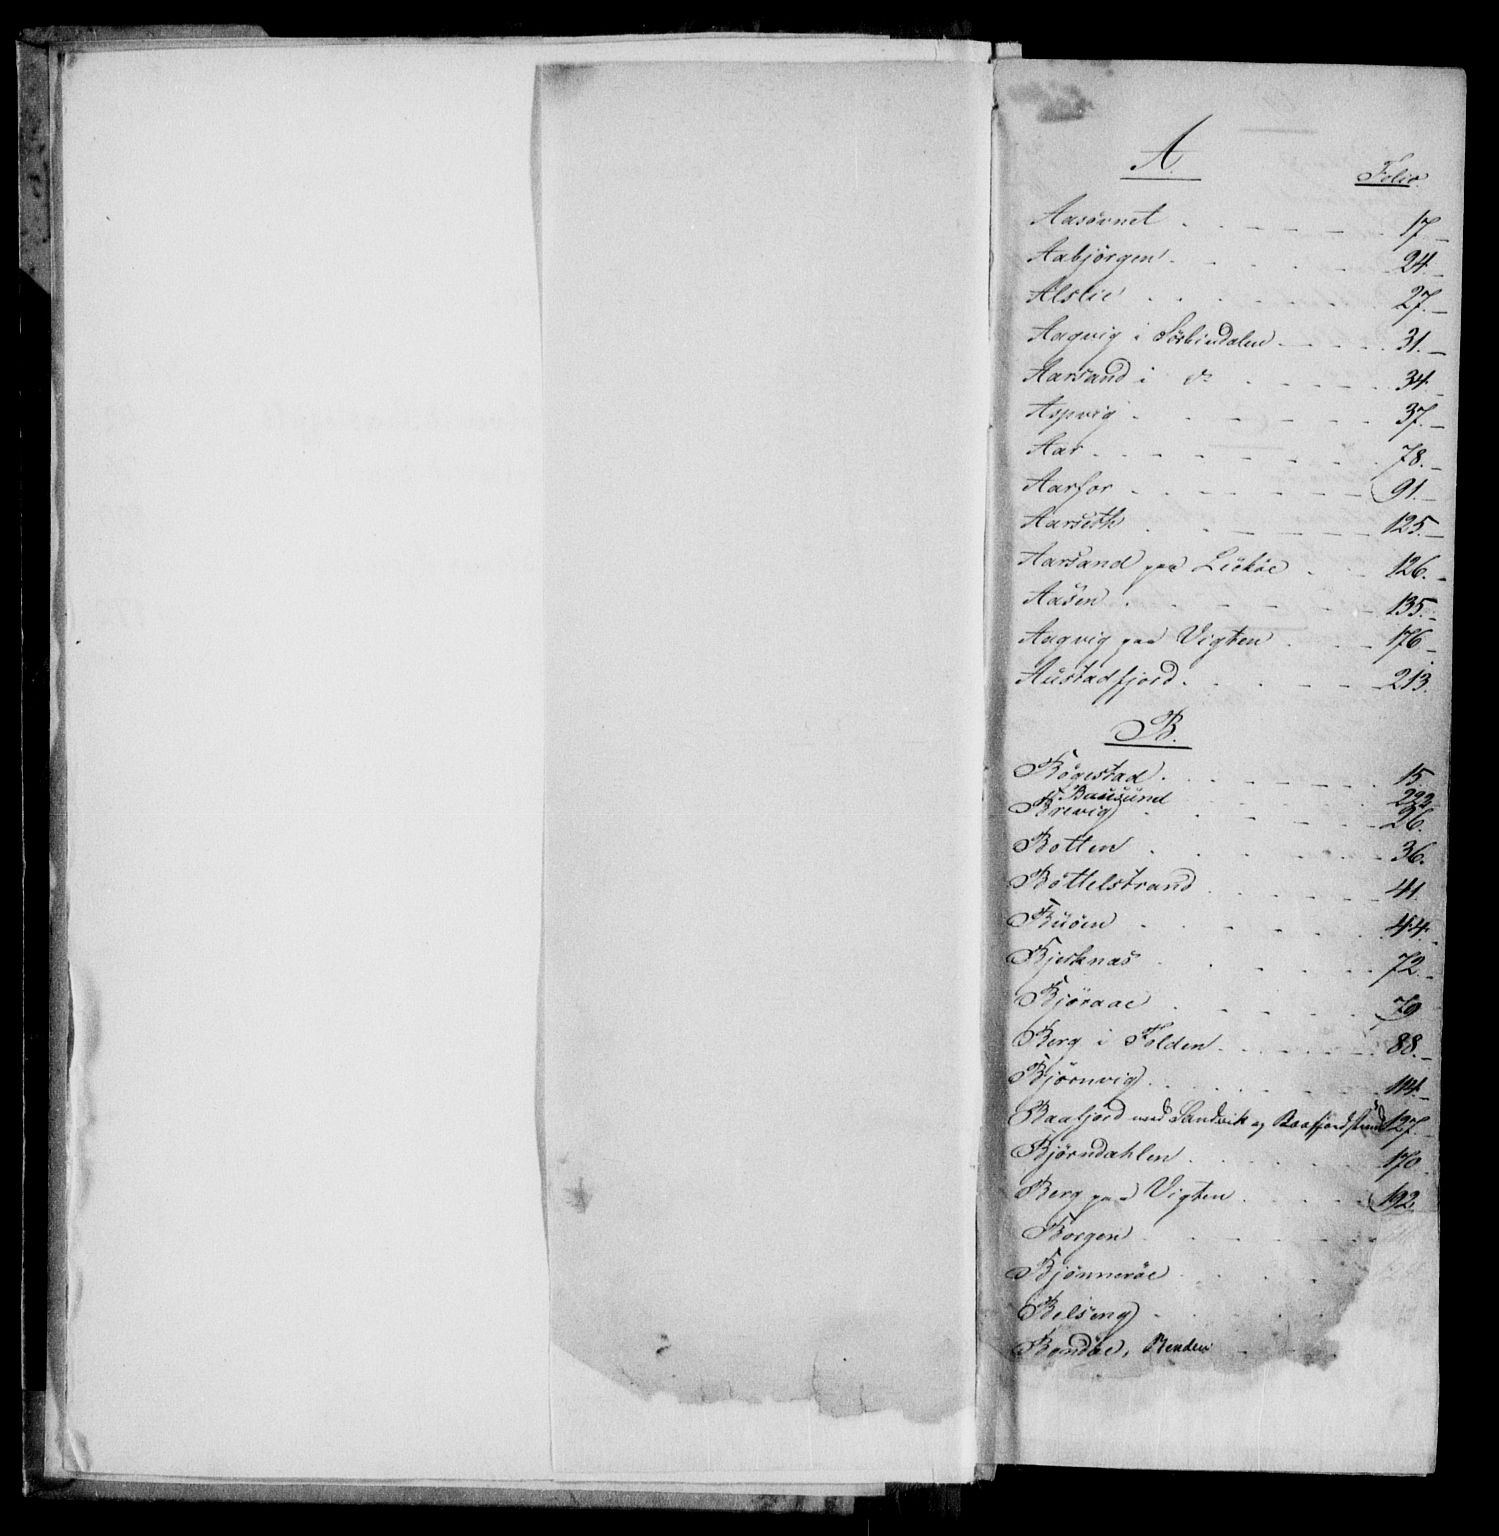 A.
Folio.
Aasövnet 17.
Aabjörgen 24
Alslie 27.
Aagvig i Sörbindalen 31.
Aarsand i do 34
Aspvig 37.
Aar 78.
Aarfor 91.
Aarseth 125.
Aarsand paa Leköe 126.
Aasen 135.
Aagvig paa Vigten 176
Austadfjord 213.
B.
Bögestad 15
Bausund 222
Brevig 26.
Botten 36.
Bottelstrand 41
Buöen 44.
Bjerknas 72
Björaae 79
Berg i Folden 88.
Bjornvig 114.
Baafjord med Sandvik og 127.
Björndahlen 170
Berg paa Vigten 192
Borgen
Bjönneröe
Belseng
Bondöe, Benden